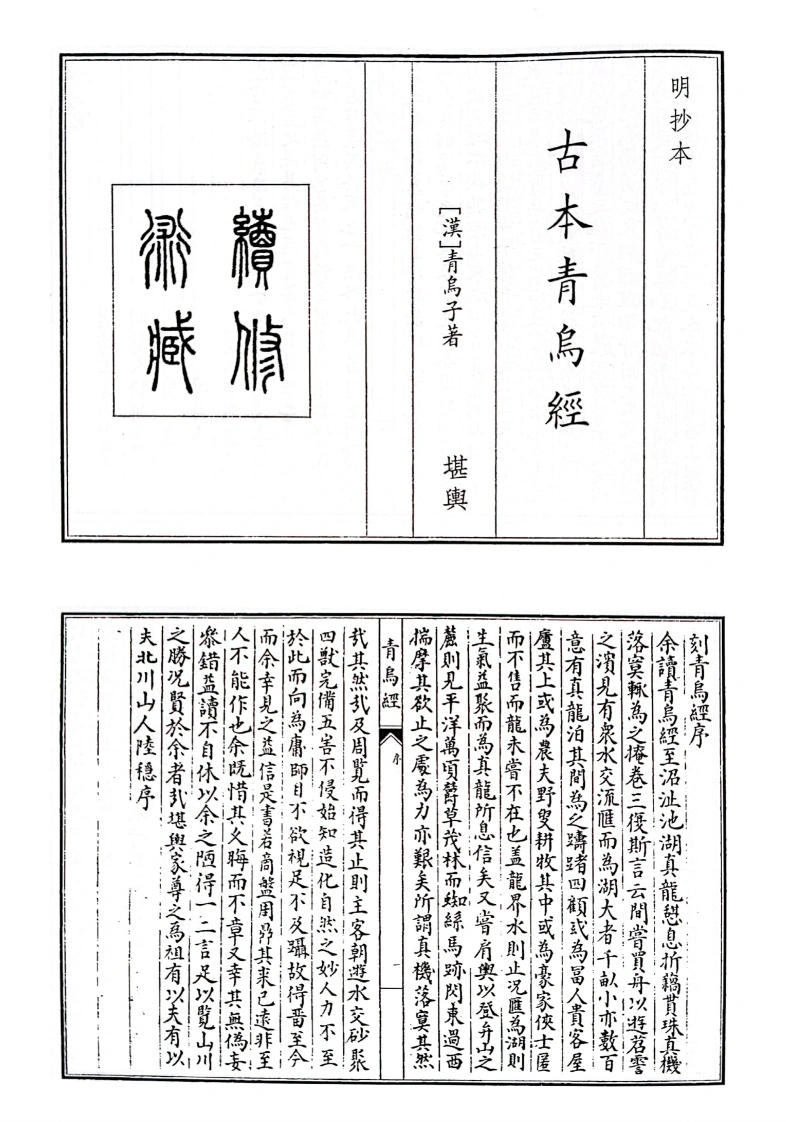 明抄本
古本青烏經
[漢]青烏子著
堪輿
續修
術藏
刻青烏經序
余讀青烏經至沼沚池湖真龍憩息折藕貫珠真機
落寞輒為之掩卷三復斯言云間嘗買舟以遊苕霅
之濱見有眾水交流匯而為湖大者千畝小亦數百
意有真龍泊其間為之躊躇四顧或為冨人貴客屋
廬其上或為農夫野叟耕牧其中或為豪家俠士匿
而不售而龍未嘗不在也盖龍界水則止況匯為湖則
生氣益聚而為真龍所息信矣又嘗肩輿以登弁山之
麓則見平洋萬頃欝草茂林而蜘絲馬跡閃東過西
揣摩其欲止之處為力亦艱矣所謂真機落寞其然
青烏經
序
一
㦲其然㦲及周覽而得其止則主客朝遊水交砂聚
四獸完備五害不侵始知造化自然之妙人力不至
於此而向為庸師目不欲視足不及躡故得畱至今
而余幸見之益信是書若商盤周鼎其来已遠非至
人不能作也余既惜其乆晦而不章又幸其無偽妄
叅錯益讀不自休以余之陋得一二言足以覽山川
之勝况賢於余者㦲堪輿家尊之為祖有以夫有以
夫北川山人陸穩序